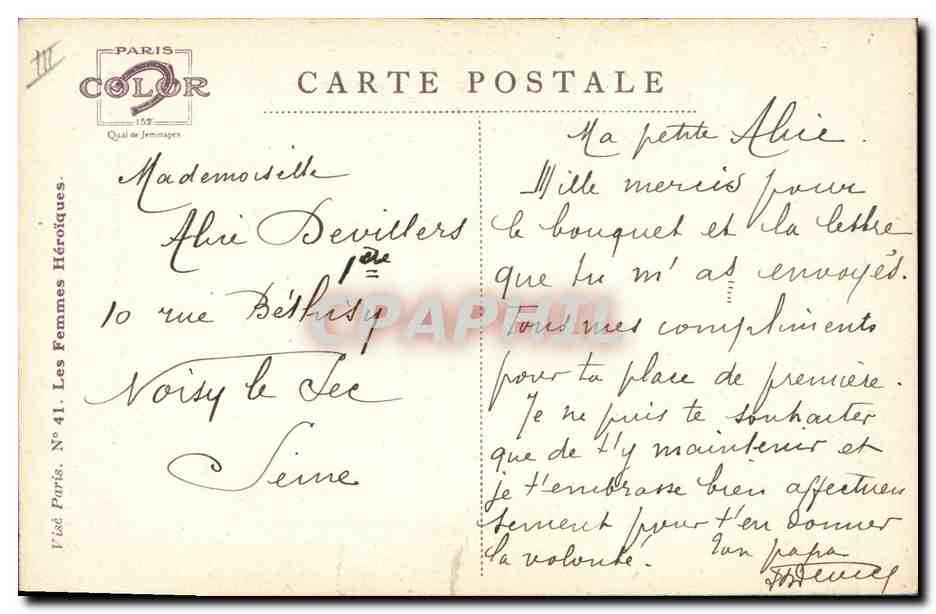 III
PARIS
COLOR
152
Quai de Jemmapes
CARTE POSTALE
Visé Paris. N° 41. Les Femmes Héroïques.
Mademoiselle
Alice Devillers
1ère
10 rue Béthisy
Noisy le Sec
Seine
Ma petite Alice.
Mille mercis pour
le bouquet et la lettre
que tu m'as envoyés.
Tous mes compliments
pour ta place de première.
Je ne puis te souhaiter
que de t'y maintenir et
je t'embrasse bien affectueu
sement pour t'en donner
la volonté. Ton papa
CPAPHIL